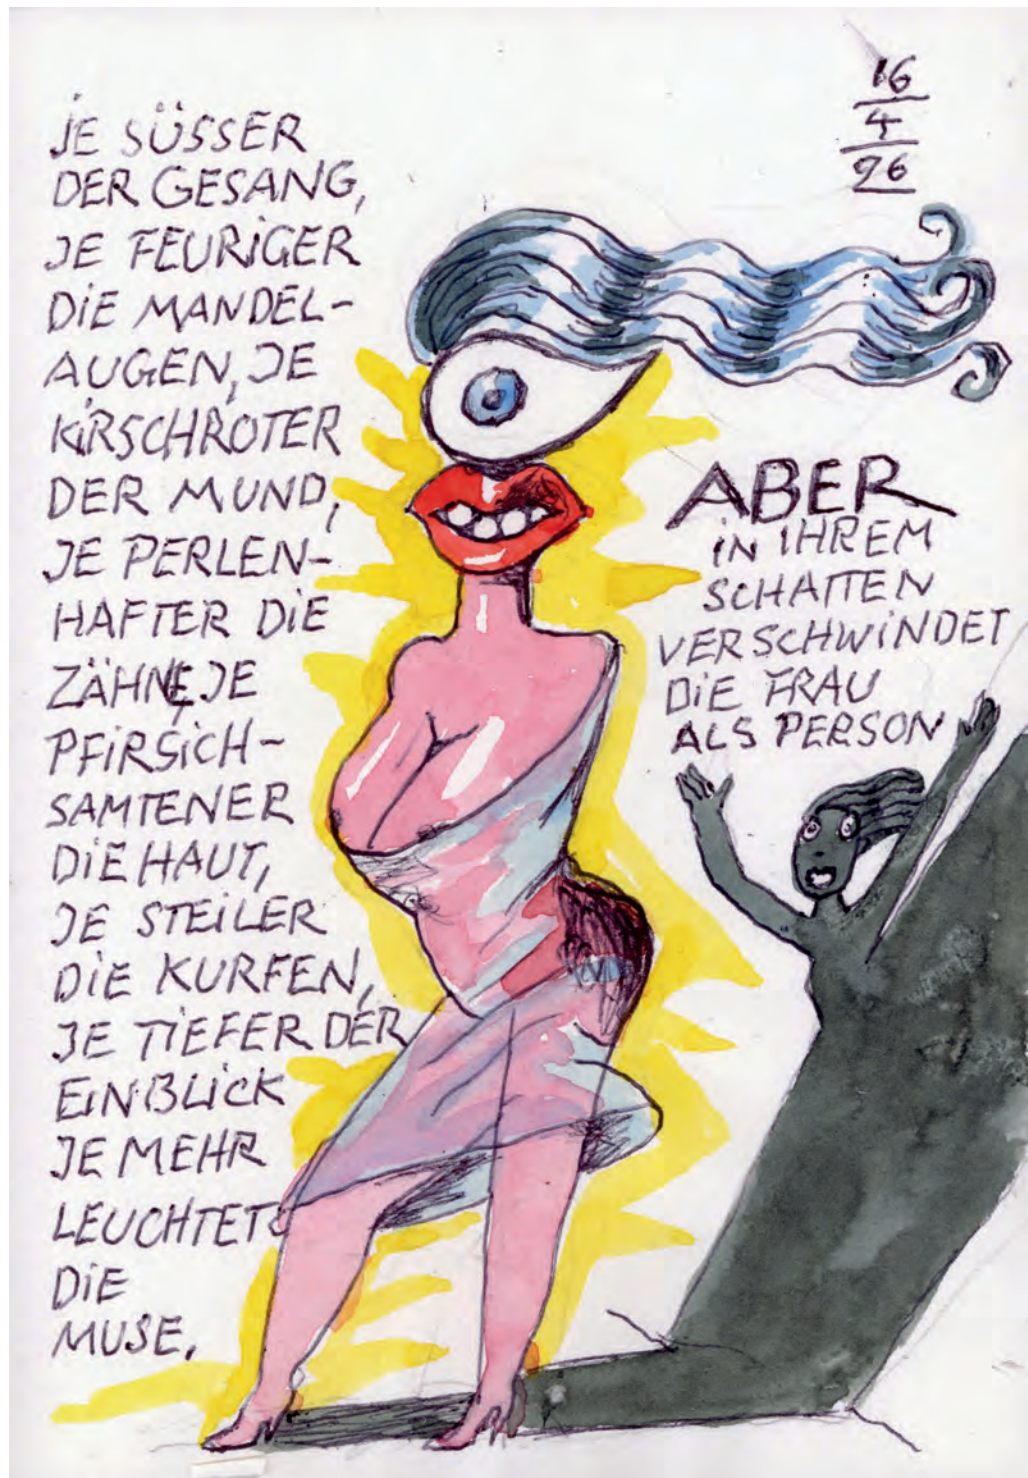 JE SÜSSER
DER GESANG,
JE FEURIGER
DIE MANDEL-
AUGEN, JE
KIRSCHROTER
DER MUND,
JE PERLEN-
HAFTER DIE
ZÄHNE, JE
PFIRSICH-
SAMTENER
DIE HAUT,
JE STEILER
DIE KURFEN,
JE TIEFER DER
EINBLICK
JE MEHR
LEUCHTET
DIE
MUSE.
16
4
96
ABER
IN IHREM
SCHATTEN
VERSCHWINDET
DIE FRAU
ALS PERSON